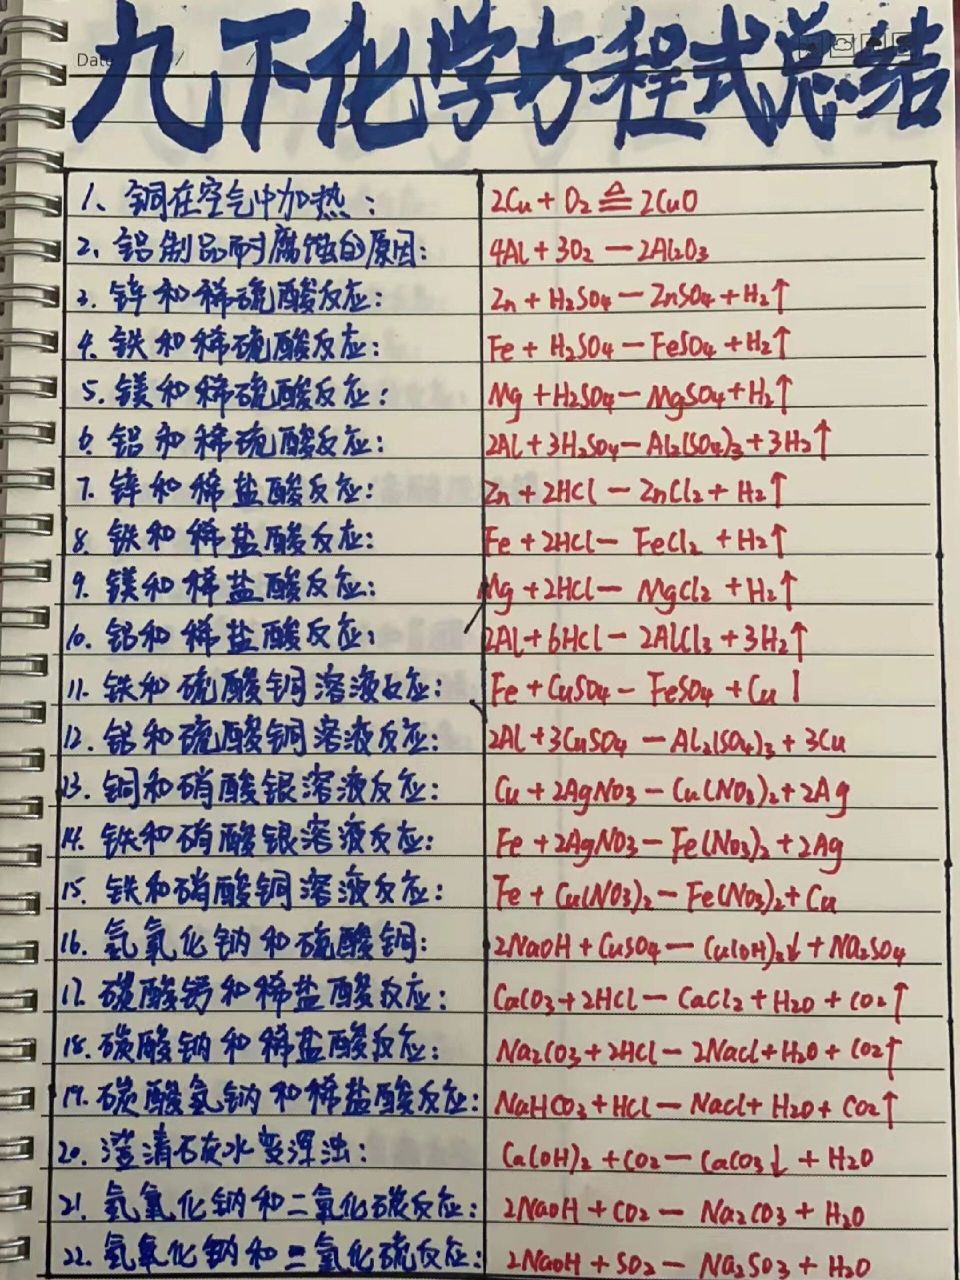 Date / /
九下化学方程式总结
1、铜在空气中加热： 2Cu + O2 ≜ 2CuO
2、铝制品耐腐蚀的原因： 4Al + 3O2 — 2Al2O3
3. 锌和稀硫酸反应： Zn + H2SO4 — ZnSO4 + H2↑
4. 铁和稀硫酸反应： Fe + H2SO4 — FeSO4 + H2↑
5. 镁和稀硫酸反应： Mg + H2SO4 — MgSO4 + H2↑
6. 铝和稀硫酸反应： 2Al + 3H2SO4 — Al2(SO4)3 + 3H2↑
7. 锌和稀盐酸反应： Zn + 2HCl — ZnCl2 + H2↑
8. 铁和稀盐酸反应： Fe + 2HCl — FeCl2 + H2↑
9. 镁和稀盐酸反应： Mg + 2HCl — MgCl2 + H2↑
10. 铝和稀盐酸反应： 2Al + 6HCl — 2AlCl3 + 3H2↑
11. 铁和硫酸铜溶液反应： Fe + CuSO4 — FeSO4 + Cu
12. 铝和硫酸铜溶液反应： 2Al + 3CuSO4 — Al2(SO4)3 + 3Cu
13. 铜和硝酸银溶液反应： Cu + 2AgNO3 — Cu(NO3)2 + 2Ag
14. 铁和硝酸银溶液反应： Fe + 2AgNO3 — Fe(NO3)2 + 2Ag
15. 铁和硝酸铜溶液反应： Fe + Cu(NO3)2 — Fe(NO3)2 + Cu
16. 氢氧化钠和硫酸铜： 2NaOH + CuSO4 — Cu(OH)2↓ + Na2SO4
17. 碳酸钙和稀盐酸反应： CaCO3 + 2HCl — CaCl2 + H2O + CO2↑
18. 碳酸钠和稀盐酸反应： Na2CO3 + 2HCl — 2NaCl + H2O + CO2↑
19. 碳酸氢钠和稀盐酸反应： NaHCO3 + HCl — NaCl + H2O + CO2↑
20. 澄清石灰水变浑浊： Ca(OH)2 + CO2 — CaCO3↓ + H2O
21. 氢氧化钠和二氧化碳反应： 2NaOH + CO2 — Na2CO3 + H2O
22. 氢氧化钠和二氧化硫反应： 2NaOH + SO2 — Na2SO3 + H2O